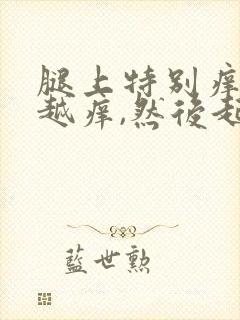 腿上特别痒
越痒,然後起
藍世勲